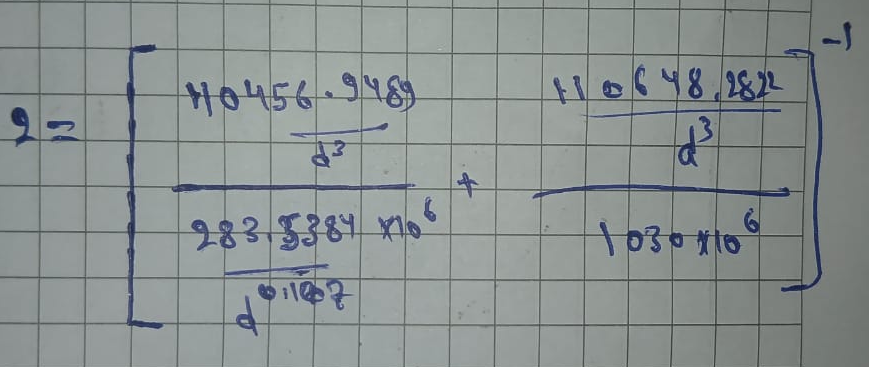 2 = [ (110456.9489 / d^3) / (283.5384 × 10^6 / d^0.107) + (110648.2822 / d^3) / (1030 × 10^6) ]^-1